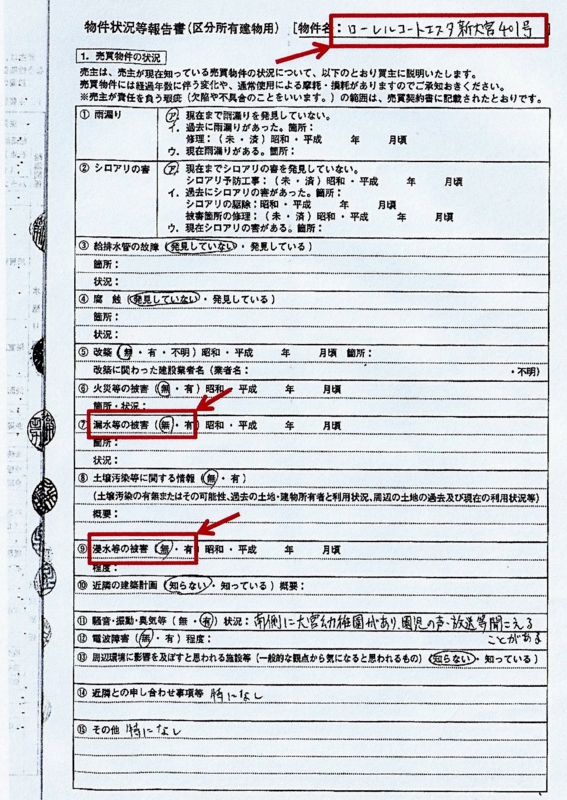 物件状況等報告書(区分所有建物用) [物件名:ローレルコートエスタ新大宮401号]
1. 売買物件の状況
売主は、売主が現在知っている売買物件の状況について、以下のとおり買主に説明いたします。
売買物件には経過年数に伴う変化や、通常使用による摩耗・損耗がありますのでご承知おきください。
※売主が責任を負う瑕疵(欠陥や不具合のことをいいます。)の範囲は、売買契約書に記載されたとおりです。
① 雨漏り ア. 現在まで雨漏りを発見していない。
イ. 過去に雨漏りがあった。箇所:
修理:(未・済)昭和・平成 年 月頃
ウ. 現在雨漏りがある。箇所:
② シロアリの害 ア. 現在までシロアリの害を発見していない。
シロアリ予防工事:(未・済)昭和・平成 年 月頃
イ. 過去にシロアリの害があった。箇所:
シロアリの駆除:昭和・平成 年 月頃
被害箇所の修理:(未・済)昭和・平成 年 月頃
ウ. 現在シロアリの害がある。箇所:
③ 給排水管の故障(発見していない・発見している)
箇所:
状況:
④ 腐 蝕(発見していない・発見している)
箇所:
状況:
⑤ 改築(無・有・不明)昭和・平成 年 月頃 箇所:
改築に関わった建設業者名(業者名: ・不明)
⑥ 火災等の被害(無・有)昭和・平成 年 月頃
箇所・状況:
⑦ 漏水等の被害(無・有)昭和・平成 年 月頃
箇所:
状況:
⑧ 土壌汚染等に関する情報(無・有)
(土壌汚染の有無またはその可能性、過去の土地・建物所有者と利用状況、周辺の土地の過去及び現在の利用状況等)
概要:
⑨ 浸水等の被害(無・有)昭和・平成 年 月頃
程度:
⑩ 近隣の建築計画(知らない・知っている)概要:
⑪ 騒音・振動・臭気等(無・有)状況:南側に大宮幼稚園があり、園児の声・放送等聞こえる
ことがある
⑫ 電波障害(無・有)程度:
⑬ 周辺環境に影響を及ぼすと思われる施設等(一般的な観点から気になると思われるもの)(知らない・知っている)
⑭ 近隣との申し合わせ事項等 特になし
⑮ その他 特になし